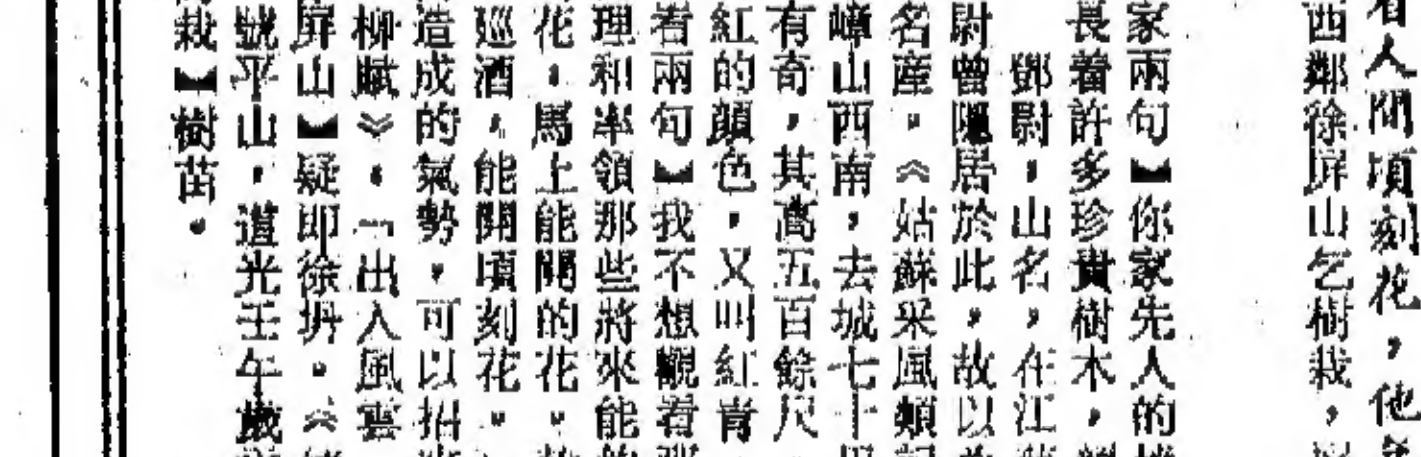 看人間頃刻花,他
西鄰徐屏山乞樹栽,
家兩句】你家先人的
長着許多珍貴樹木,
鄧尉,山名,在江
尉曾隱居於此,故以
名產。《姑蘇采風類記
嶂山西南,去城七十里
有奇,其高五百餘尺
紅的顏色,又叫紅青
着兩句】我不想觀看那
理和率領那些將來能
花,馬上能開的花。
巡酒,能開頃刻花。
造成的氣勢,可以招
柳賦》,「出入風雲
屏山】疑即徐坍。《
號平山,道光壬午歲
栽】樹苗。